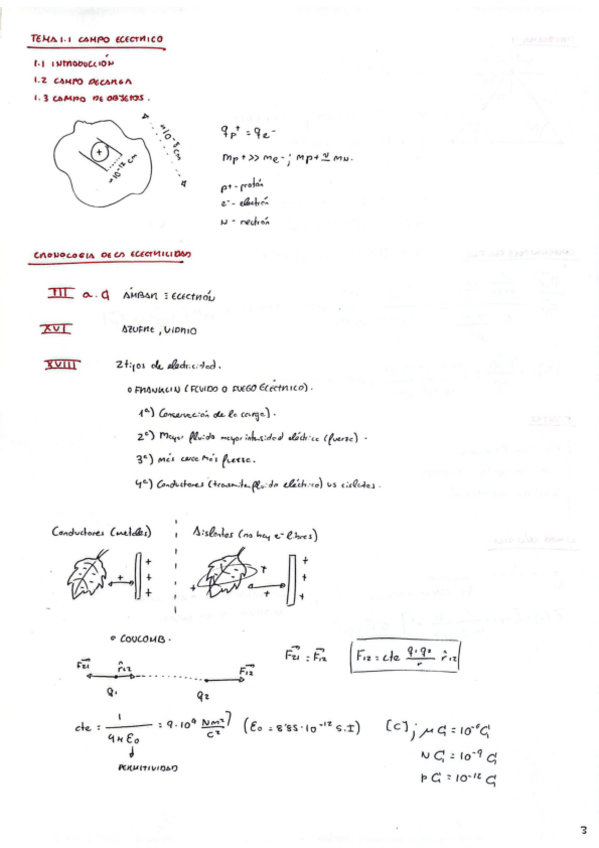 TEMA 1.1 CAMPO ELECTRICO
1.1 INTRODUCCIÓN
1.2 CAMPO DE CARGA
1.3 CAMPO DE OBJETOS.
≈10⁻⁸ cm
≈10⁻¹² cm
qp⁺ = qe⁻
mp⁺ >> me⁻ ; mp⁺ ≃ mN.
p⁺ - protón
e⁻ - electrón
N - neutrón
CRONOLOGIA DE LA ELECTRICIDAD
III a.C ÁMBAR ≡ ELECTRÓN
XVI AZUFRE, VIDRIO
XVIII 2 tipos de electricidad.
o FRANKLIN (FLUIDO O FUEGO ELÉCTRICO).
1º) Conservación de la carga).
2º) Mayor fluido mayor intensidad eléctrica (fuerza).
3º) Más cerca más fuerza.
4º) Conductores (transmite fluido eléctrico) vs aislantes.
Conductores (metales)
Aislantes (no hay e⁻ libres)
+ + + +
+ + + + + +
o COULOMB.
F₂₁ r̂₁₂ F₁₂
q₁ q₂
F₂₁ = F₁₂
F₁₂ = cte q₁q₂/r r̂₁₂
cte = 1/4πε₀ = 9·10⁹ Nm²/C² (ε₀ = 8'85·10⁻¹² S.I)
PERMITIVIDAD
[C] ; μC = 10⁻⁶ C
NC = 10⁻⁹ C
pC = 10⁻¹² C
3